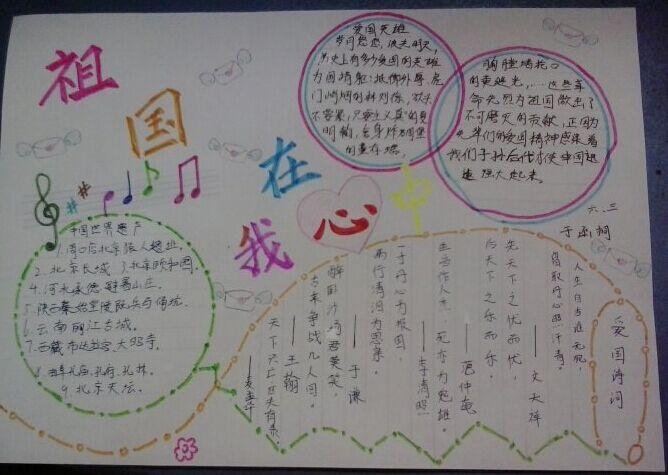 祖国在我心中
爱国英雄
岁月悠悠，浪花淘尽，
历史上有多少爱国的英雄
为国捐躯：抵御外辱，虎
门硝烟的林则徐，砍头
不要紧，只要主义真的夏
明翰，舍身炸碉堡
的董存瑞，
胸膛堵枪口
的黄继光，……这些革
命先烈为祖国做出了
不可磨灭的贡献，正因为
先辈们的爱国精神感染着
我们子孙后代才使中国迅
速强大起来。
六.三
中国世界遗产
1.周口店北京猿人遗址
2.北京长城 3.北京颐和园.
4.河北承德.避暑山庄.
5.陕西秦始皇陵及兵马俑坑.
6.云南丽江古城.
7.西藏布达拉宫、大昭寺.
8.曲阜孔庙、孔府、孔林.
9.北京天坛.
爱国诗词
人生自古谁无死，
留取丹心照汗青。
——文天祥
先天下之忧而忧，
后天下之乐而乐。
——范仲淹
生当作人杰，死亦为鬼雄。
——李清照
一寸丹心为报国，
两行清泪为思亲。
——于谦
醉卧沙场君莫笑，
古来争战几人回。
——王翰
天下兴亡匹夫有责。